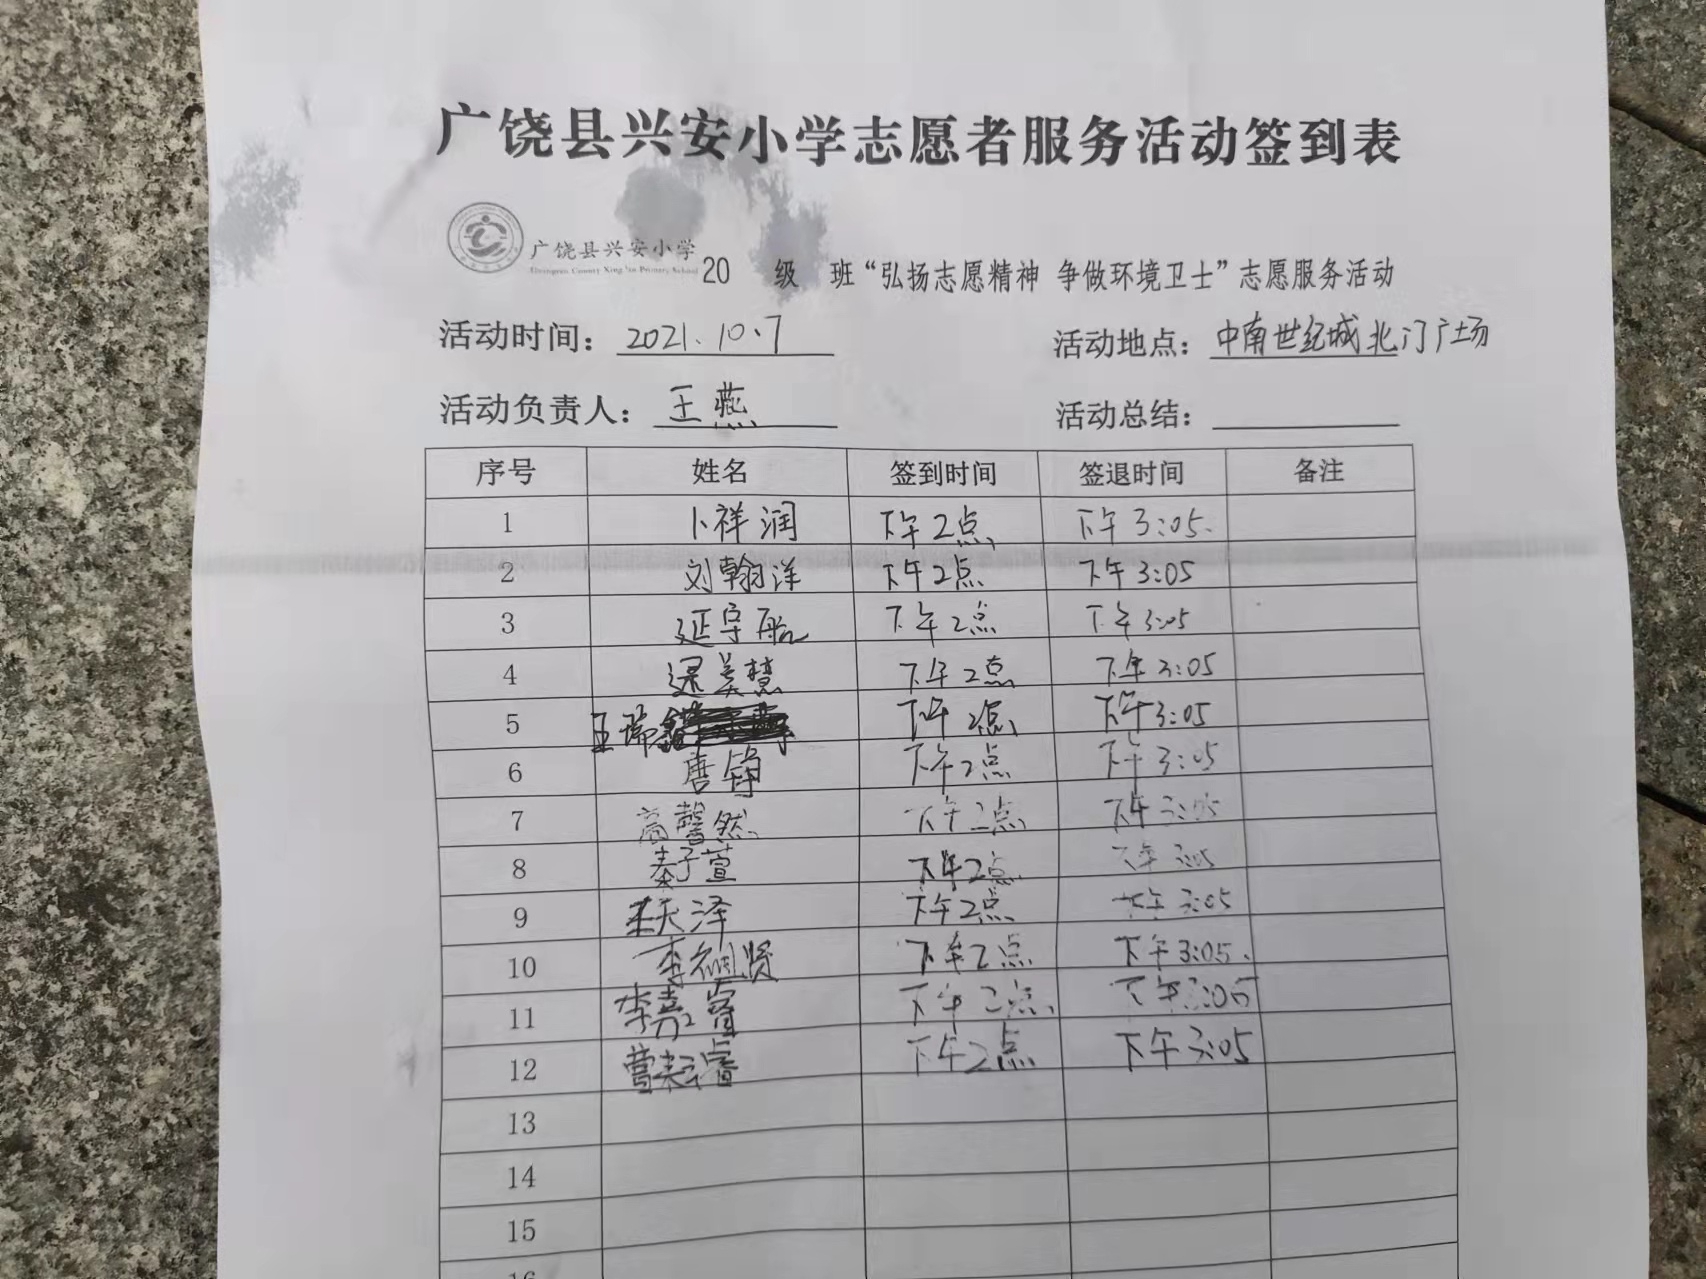 广饶县兴安小学志愿者服务活动签到表
广饶县兴安小学
Guangrao County Xing'an Primary School
20 级 班“弘扬志愿精神 争做环境卫士”志愿服务活动
活动时间：2021.10.7 活动地点：中南世纪城北门广场
活动负责人：王燕 活动总结：
序号 姓名 签到时间 签退时间 备注
1 卜祥润 下午2点 下午3:05.
2 刘翰洋 下午2点 下午3:05
3 延宇航 下午2点 下午3:05
4 逯美慧 下午2点 下午3:05
5 王瑞鑫 下午2点 下午3:05
6 唐铮 下午2点 下午3:05
7 高馨然 下午2点 下午3:05
8 秦子萱 下午2点 下午3:05
9 天泽 下午2点 下午3:05
10 李 贤 下午2点 下午3:05.
11 李嘉睿 下午2点 下午3:05
12 曹 睿 下午2点 下午3:05
13
14
15
16